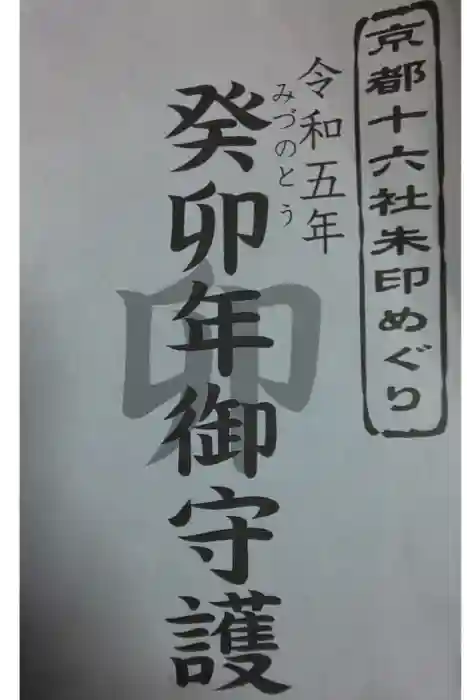 京都十六社朱印めぐり
令和五年
みづのとう
癸卯年御守護
卯